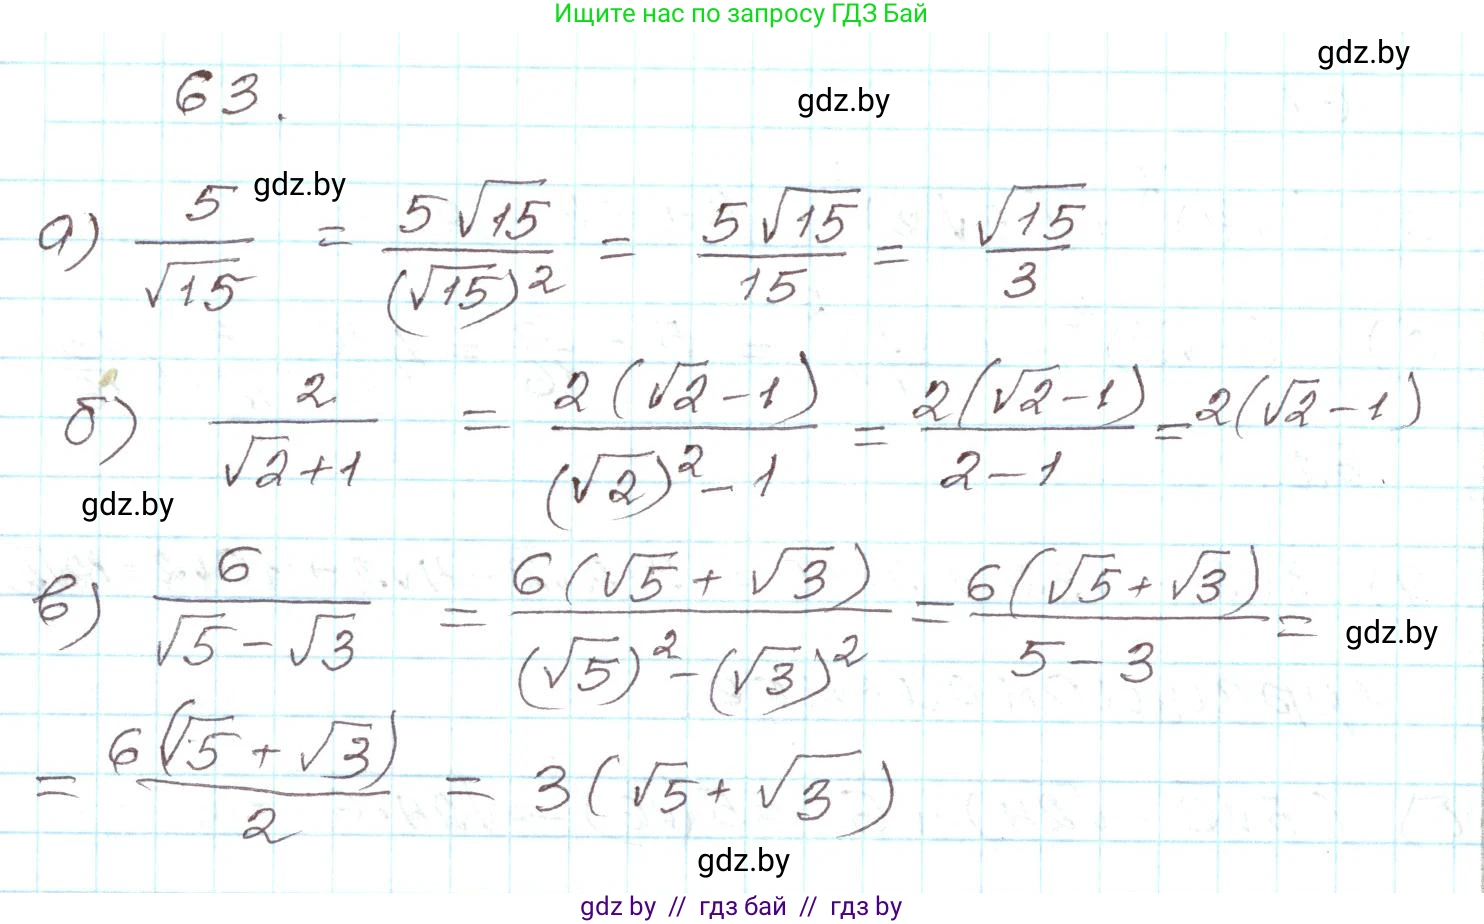 Ищите нас по запросу ГДЗ Бай
gdz.by
63.
gdz.by
gdz.by
а) 5/√15 = 5√15/(√15)² = 5√15/15 = √15/3
б) 2/(√2+1) = 2(√2-1)/((√2)²-1) = 2(√2-1)/(2-1) = 2(√2-1)
gdz.by
в) 6/(√5-√3) = 6(√5+√3)/((√5)²-(√3)²) = 6(√5+√3)/(5-3) =
gdz.by
= 6(√5+√3)/2 = 3(√5+√3)
gdz.by
gdz by // гдз бай // гдз by